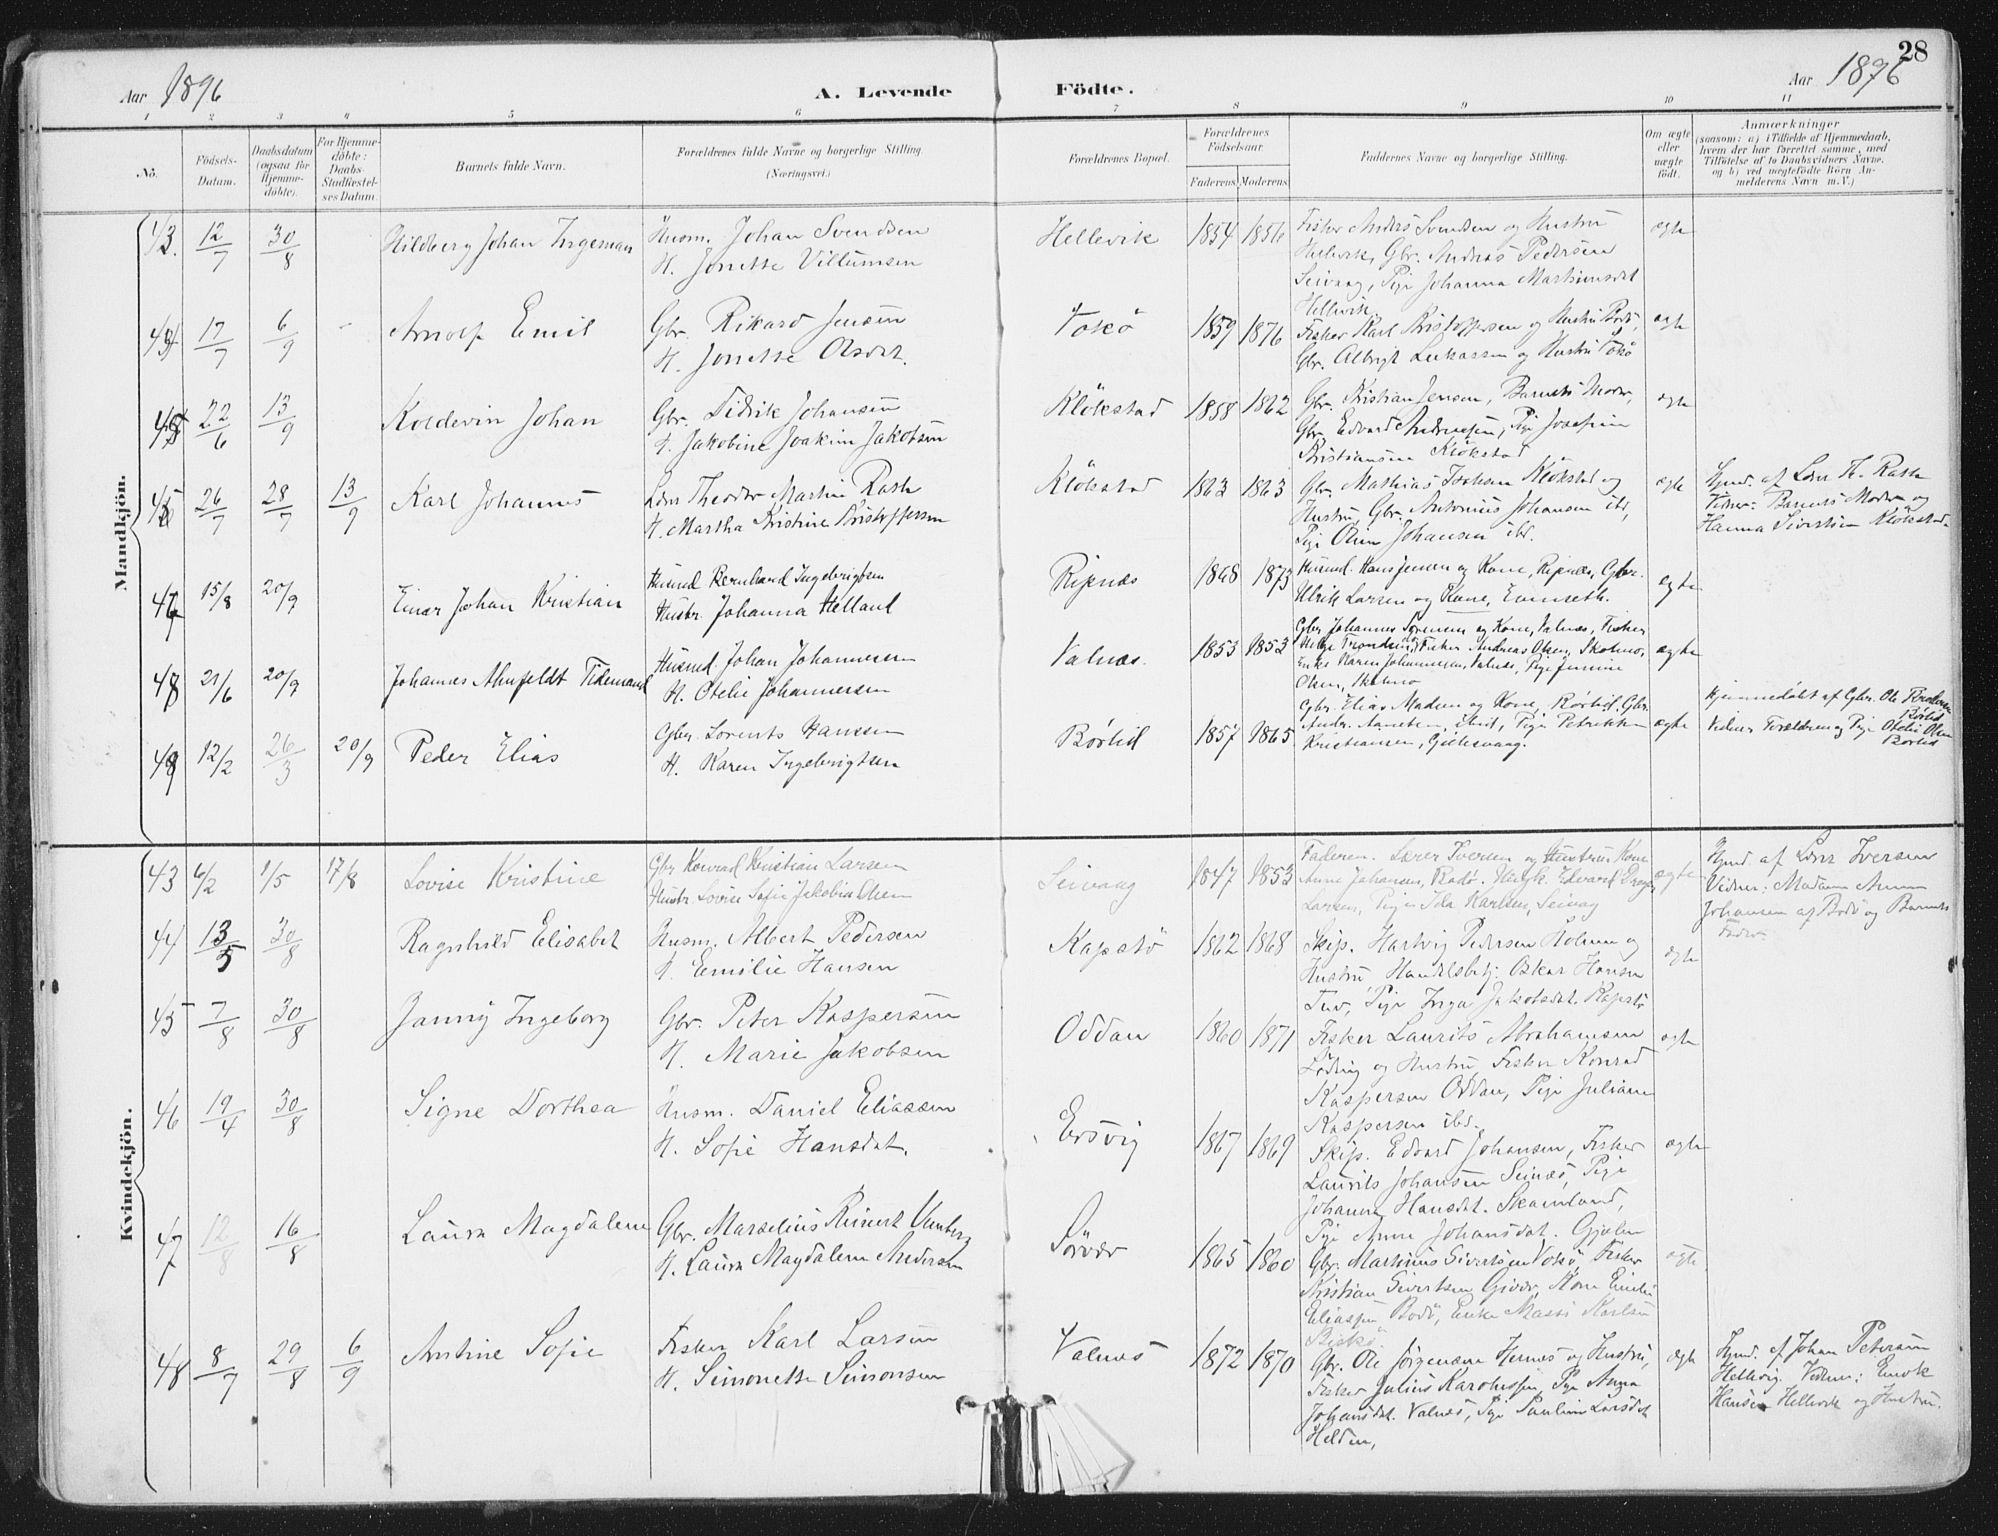 28
Aar 1896
A. Levende Födte.
Aar 1896
1 2 3 4 5 6 7 8 9 10 11
No.
Födsels-Datum.
Daabsdatum (ogsaa for Hjemme-döbte).
For Hjemme-döbte: Daabs-Stadfæstelses Datum.
Barnets fulde Navn.
Forældrenes fulde Navne og borgerlige Stilling.
(Næringsvei.)
Forældrenes Bopæl.
Forældrenes Födselsaar.
Faderens. Moderens.
Faddernes Navne og borgerlige Stilling.
Om ægte eller uægte födt.
Anmærkninger
(saasom: a) i Tilfælde af Hjemmedaab, hvem der har forrettet samme, med Tilföielse af to Daabsvidners Navne, og b) ved uægtefödte Börn Anmelderens Navn m. V.)
Mandkjön.
43. 12/7 30/8 Hildberg Johan Ingeman
Husm. Johan Svendsen
H. Jonette Villumsen
Hellevik 1854 1856
Fisker Anders Svendsen og Hustru
Hellevik, Gbr. Andreas Pedersen
Seivaag, Pige Johanna Martinusdat
Hellevik.
ægte
17/7 6/9 - Arnolf Emil
Gbr. Rikard Jensen
H. Jonette Olsdat.
Tokö 1859 1876
Fisker Karl Kristoffersen og Hustru Bodö,
Gbr. Albrigt Lukassen og Hustru Tokö
ægte
22/6 13/9 Koldevin Johan
Gbr. Didrik Johansen
H. Jakobine Joakim Jakobsen
Klökstad 1858 1862
Gbr. Kristian Jensen, Barnets Moder,
Gbr. Edvard Andreasen, Pige Josefine
Kristiansen Klökstad
ægte
26/7 28/7 13/9 Karl Johannes
Lærer Theodor Martin Rasch
H. Martha Kristine Kristoffersen
Klökstad 1863 1863
Gbr. Mathias Isaksen Klökstad og
Hustru, Gbr. Antonius Johansen ibd,
Pige Oline Johansen ibd.
ægte
Hjmd. af Lærer Th. Rasch
Vidner: Barnets Moder og
Hanna Sivertsen Klökstad.
15/8 20/9 Einar Johan Kristian
Husmd Bernhard Ingebrigtsen
Hustr. Johanna Helland
Ripnæs 1868 1873
Husmd. Hans Jensen og Kone, Ripnæs, Gbr.
Ulrik Larsen og Kone, Evenseth.
ægte
21/6 20/9 Johannes Ahnfeldt Tidemand
Husmd. Johan Johannesen
H. Otelie Johannesen
Valnæs. 1853 1853
Gbr Johannes Sörensen og Kone, Valnæs, Fisker
Helge Trondsen, Fisker Andreas Olsen, Skolmo,
Enke Karen Johannesen, Valnæs, Pige Jensine
Olsen, Skolmo
ægte
12/2 26/3 20/9 Peder Elias
Gbr. Lorents Hanssen
H. Karen Ingebrigtsen
Börlid 1857 1865
Gbr. Elias Madsen og Kone, Börlid, Gbr.
Andr. Amundsen, ibid, Pige Petrikke
Kristiansen, Gjelesvaag.
ægte
Hjemmedöbt af Gbr. Ole
Börlid
Vidner Forældrene og Pige Otelie Olsen
Börlid
Kvindekjön.
43 6/2 1/5 17/8 Lovise Kristine
Gbr Konrad Kristian Larsen
Hustr. Lovise Sofie Jakobine Olsen
Seivaag 1847 1853
Faderen. Lærer Iversen og Hustru Kone
Anne Johansen, Bodö. Ungk. Edvard
Larsen, Pige Ida Karlsen, Seivaag
ægte
Hjmd. af Lærer Iversen
Vidner: Madam Anne
Johansen af Bodö og Barnets
Fader.
44 13/5 30/8 Ragnhild Elisabet
Husm. Albert Pedersen
H. Emilie Hansen
Kapstö 1862 1868
Skip. Hartvig Pedersen Holmen og
Hustru, Handelsbetj. Oskar Hansen
Tuv, Pige Inga Jakobsdat. Kapstö
ægte
45 7/8 30/8 Janny Ingeborg
Gbr. Peter Kaspersen
H. Marie Jakobsen
Oddan 1860 1871
Fisker Laurits Abrahamsen
Löding og Hustru, Fisker Konrad
Kaspersen Oddan, Pige Juliane
Kaspersen ibd.
ægte
46 19/4 30/8 Signe Dorthea
Husm. Daniel Eliassen
H. Sofie Hansdat.
Ersvig 1867 1869
Skip. Edvard Johansen, Fisker
Laurits Johansen Seines, Pige
Johanna Hansdat. Skamland,
Pige Anne Johansdat. Gjelen
ægte
47 12/8 16/8 Laura Magdalene
Gbr. Marselius Reinert
H. Laura Magdalene Andersen
Sörvær 1865 1860
Gbr. Martinus Sivertsen Tokö, Fisker
Kristian Sivertsen Givær, Kone Emilie
Eliassen Bodö, Enke Massi Karlsen
ægte
48 8/7 29/8 6/9 Antine Sofie
Fisker Karl Larsen
H. Simonette Simonsen
Valnes 1872 1870
Gbr. Ole Jörgensen Hernes og Hustru,
Fisker Julius Karolussen, Pige Anna
Johansdat. Valnes, Pige Pauline Larsdat
Helden,
ægte
Hjmd. af Johan Petersen
Hellevig. Vidner: Enok
Hansen Hellevik og Hustru.